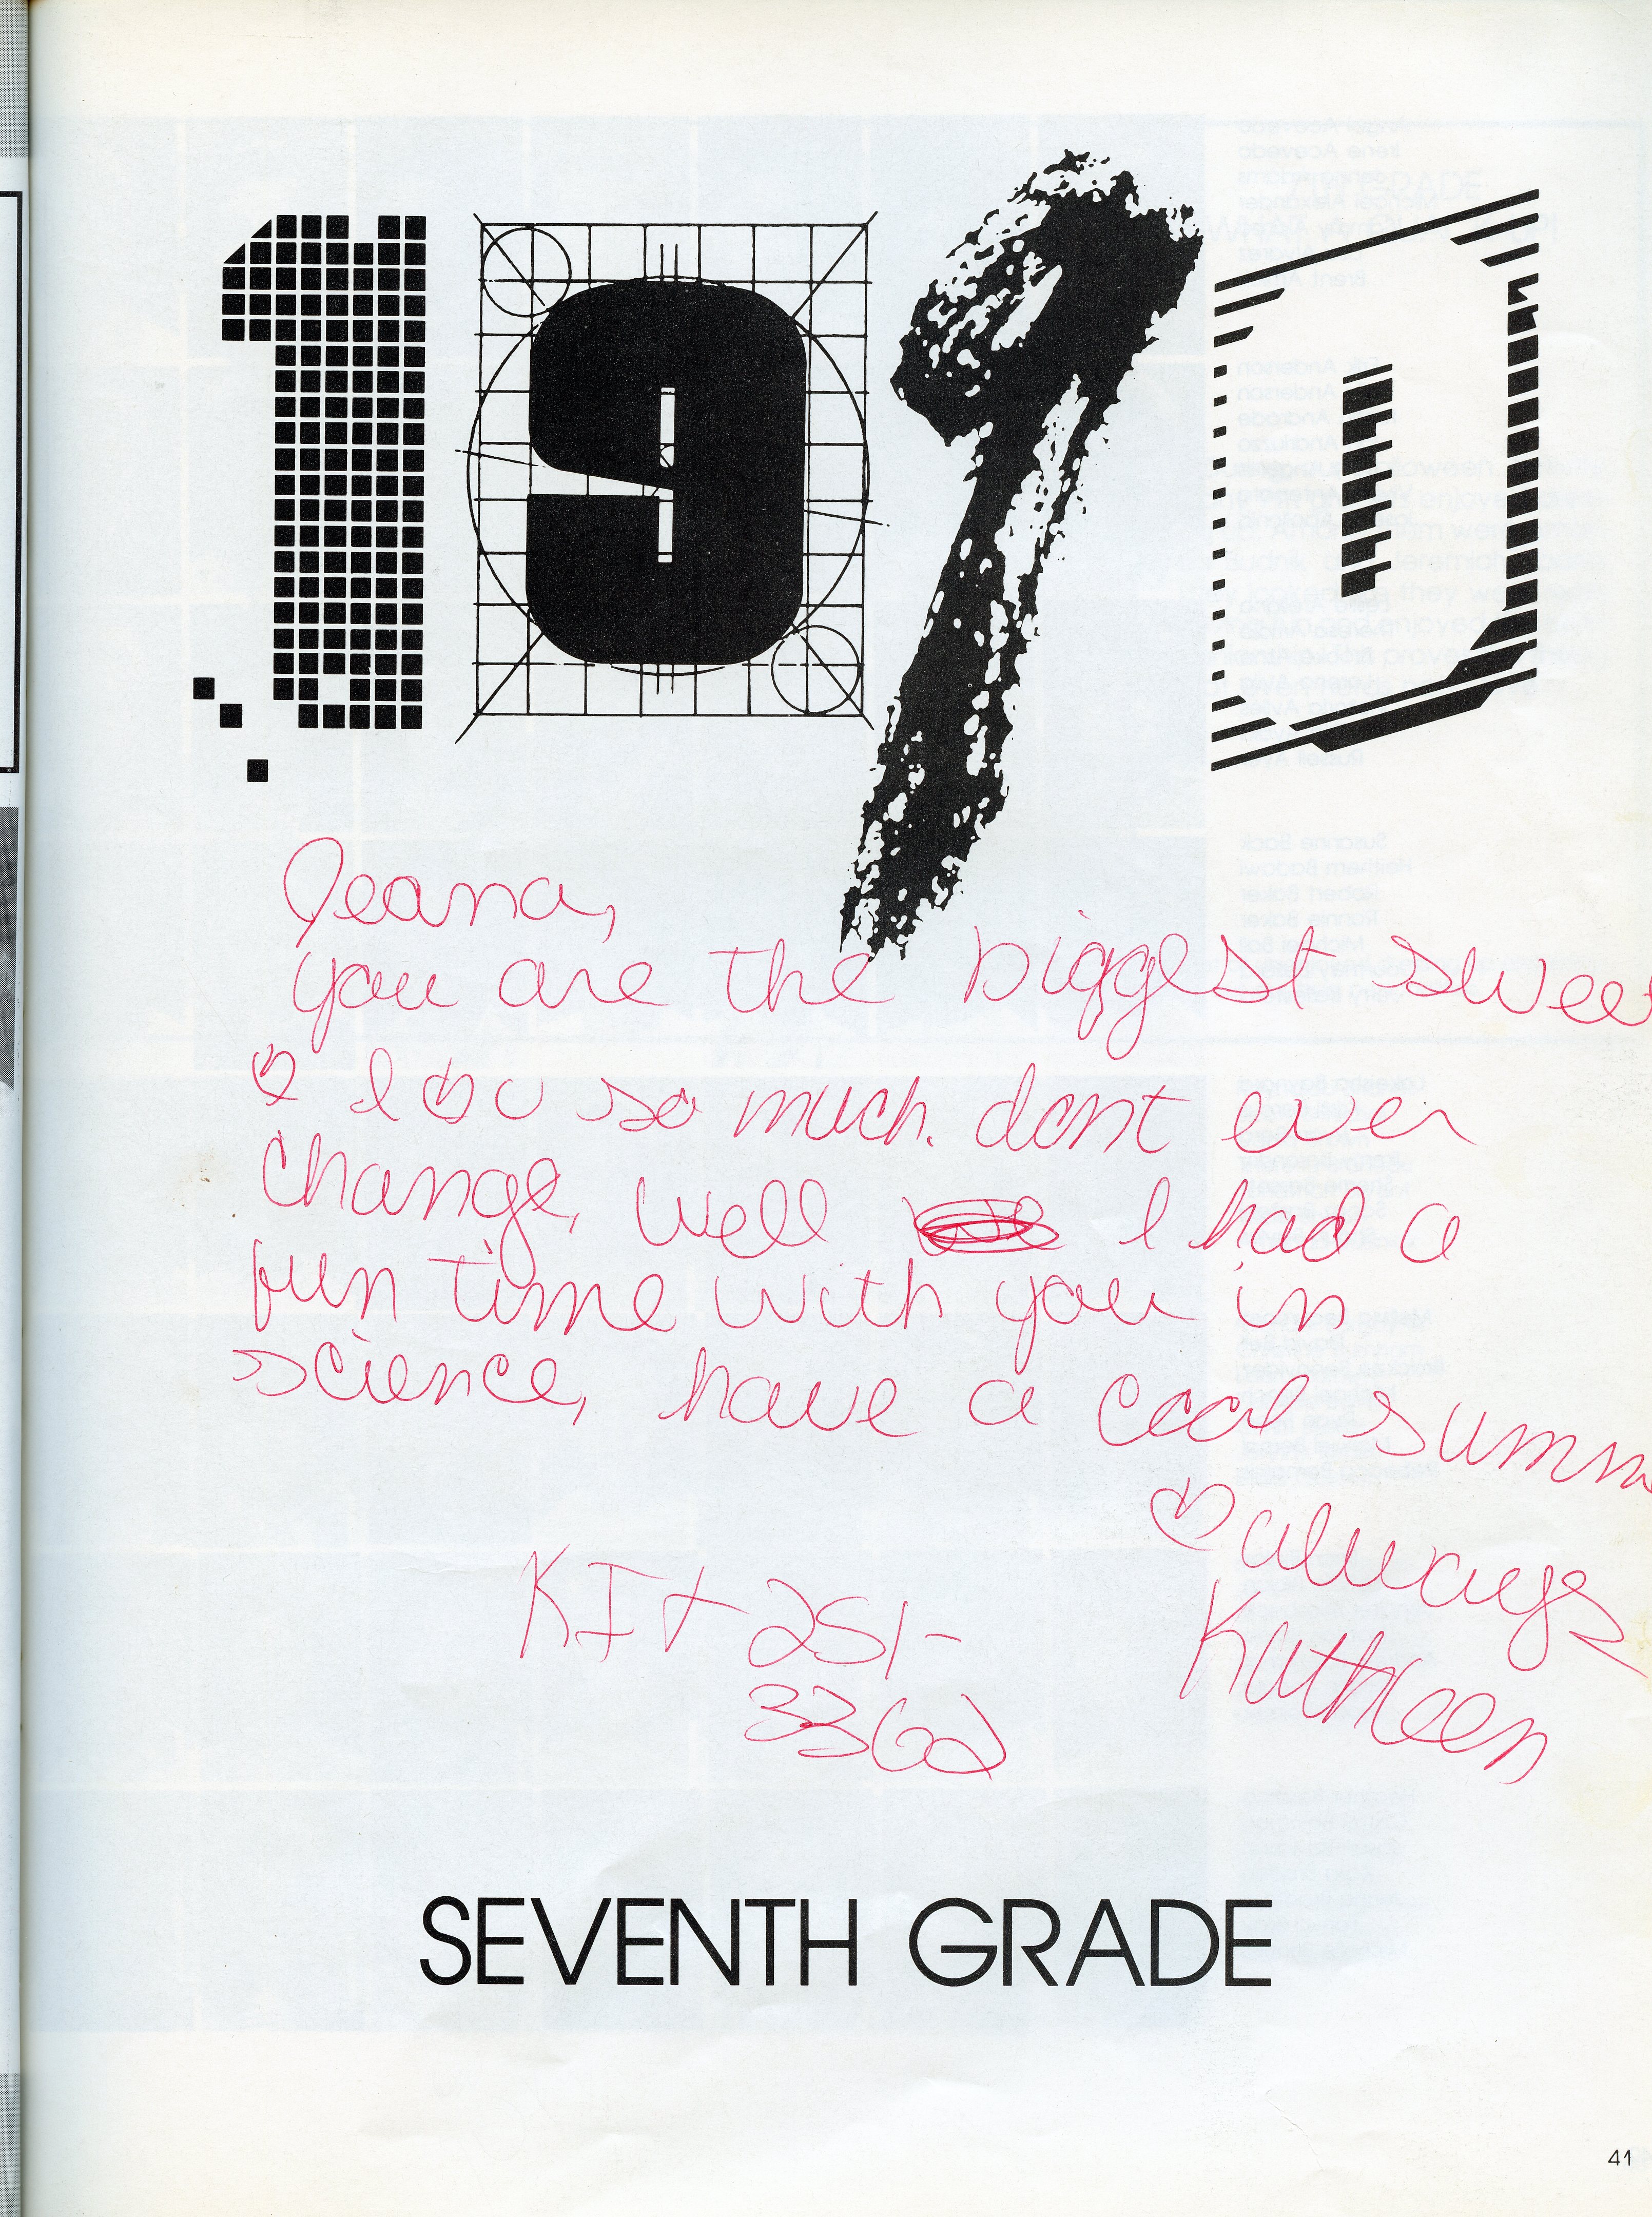 1970
Jeana,
you are the biggest sweet
♡ I ♡ U so much. dont ever
change, well I had a
fun time with you in
science, have a cool summe
♡ always
Kathleen
KIT 251-
3362
SEVENTH GRADE
41